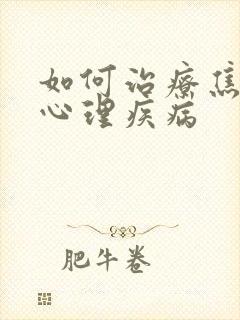 如何治療焦
心理疾病
肥牛卷